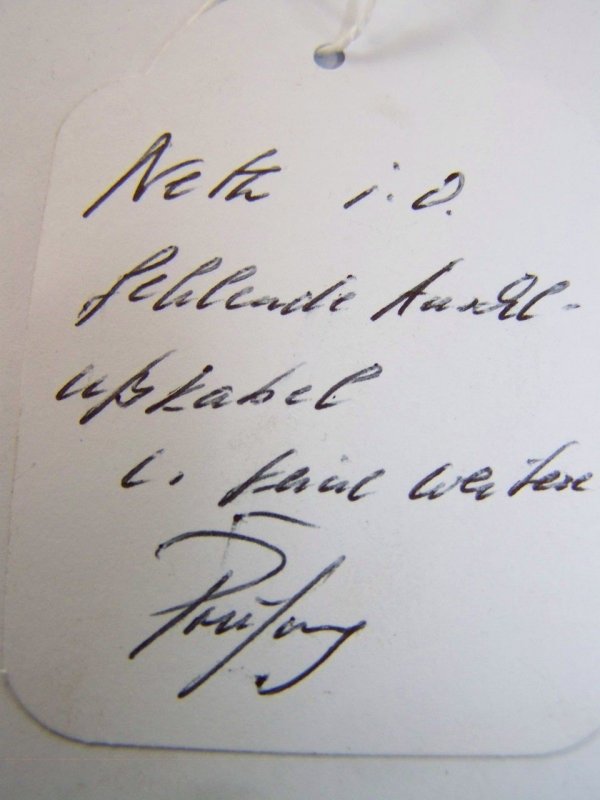 Netz i.O.
fehlende Anschl-
ußkabel
l. keine weitere
Prüfung